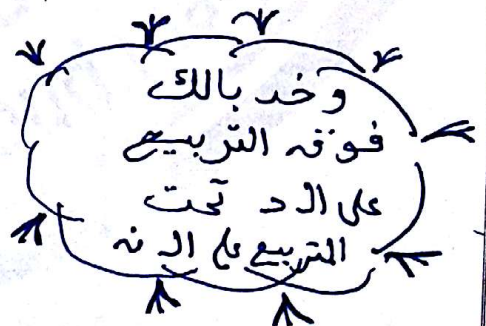 وخد بالك
فوق التربيع
على ال د تحت
التربيع على ال نه